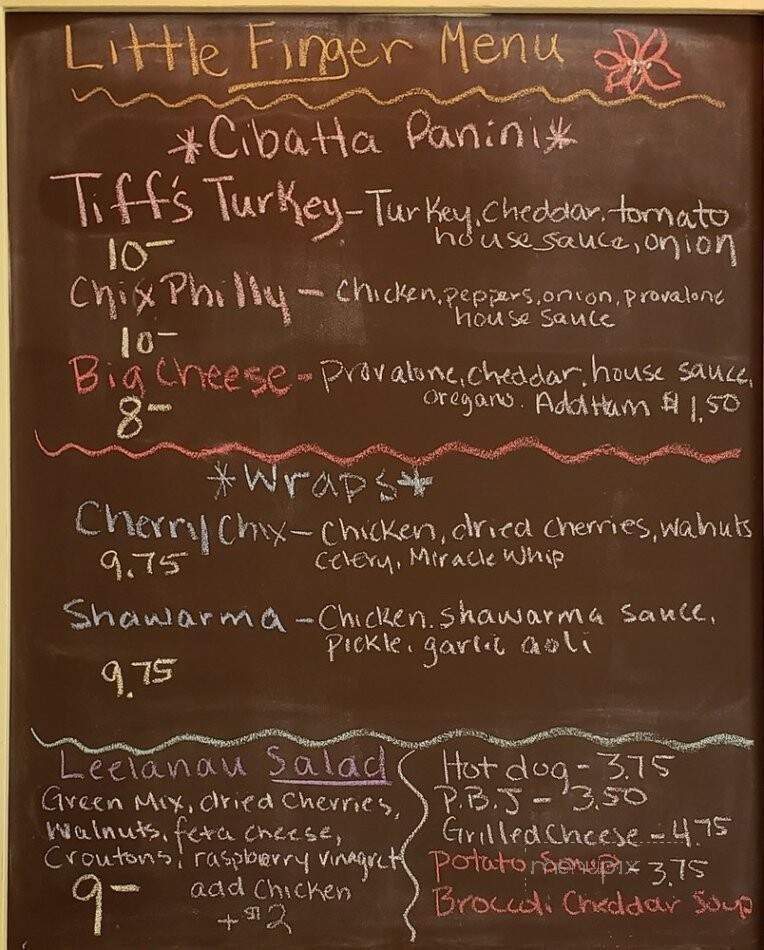 Little Finger Menu
*Cibatta Panini*
Tiff's Turkey - Turkey, Cheddar, tomato
house sauce, onion
10-
Chix Philly - Chicken, peppers, onion, provalone
house sauce
10-
Big Cheese - Provalone, cheddar, house sauce,
oregano. Add Ham $1.50
8-
*Wraps*
Cherry Chix - Chicken, dried cherries, walnuts
Celery, Miracle Whip
9.75
Shawarma - Chicken, shawarma sauce,
pickle, garlic aoli
9.75
Leelanau Salad
Green Mix, dried Cherries,
Walnuts, feta cheese,
Croutons, raspberry vinagret
9- add Chicken
+$2
Hot dog - 3.75
P.B.J - 3.50
Grilled Cheese - 4.75
Potato Soup - 3.75
menupix
Broccoli Cheddar Soup